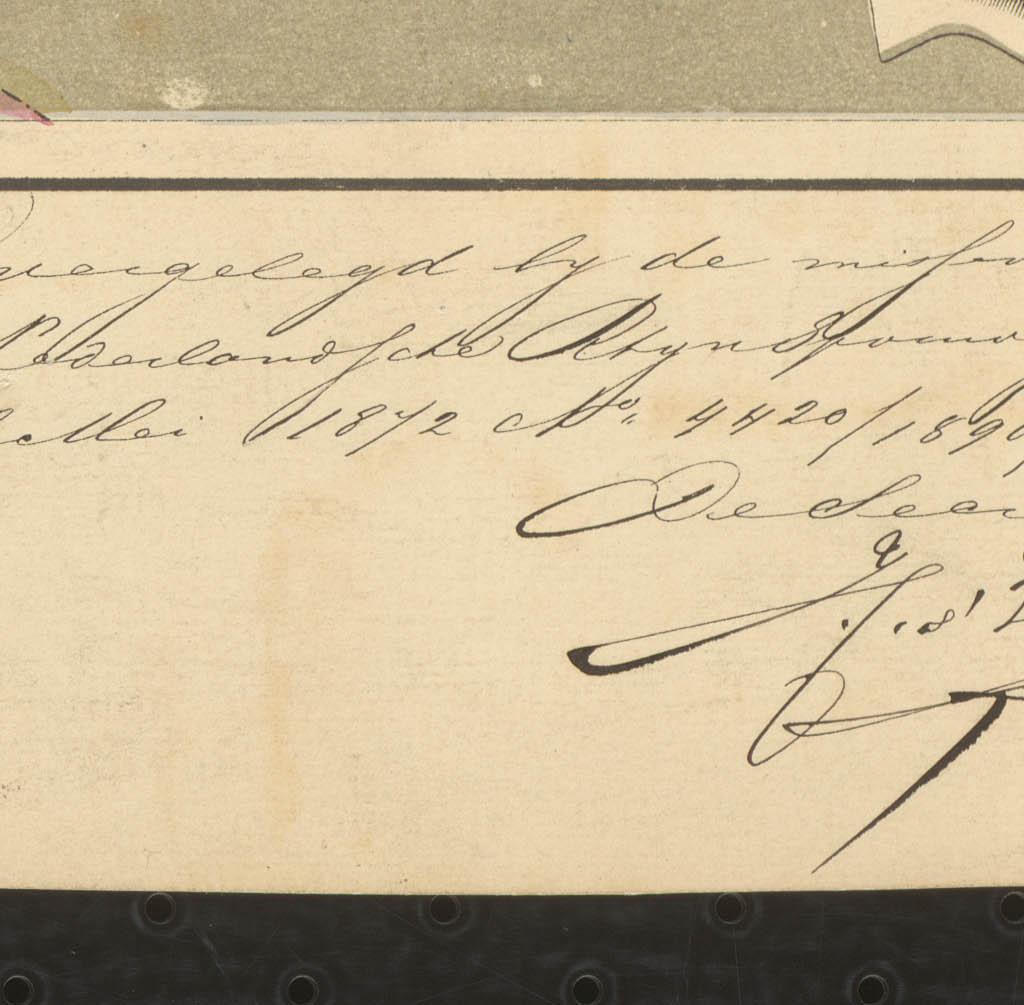 overgelegd by de missiv
Nederlandsche Rhynspoorw
Mei 1872 No. 4420/1890
De Secr